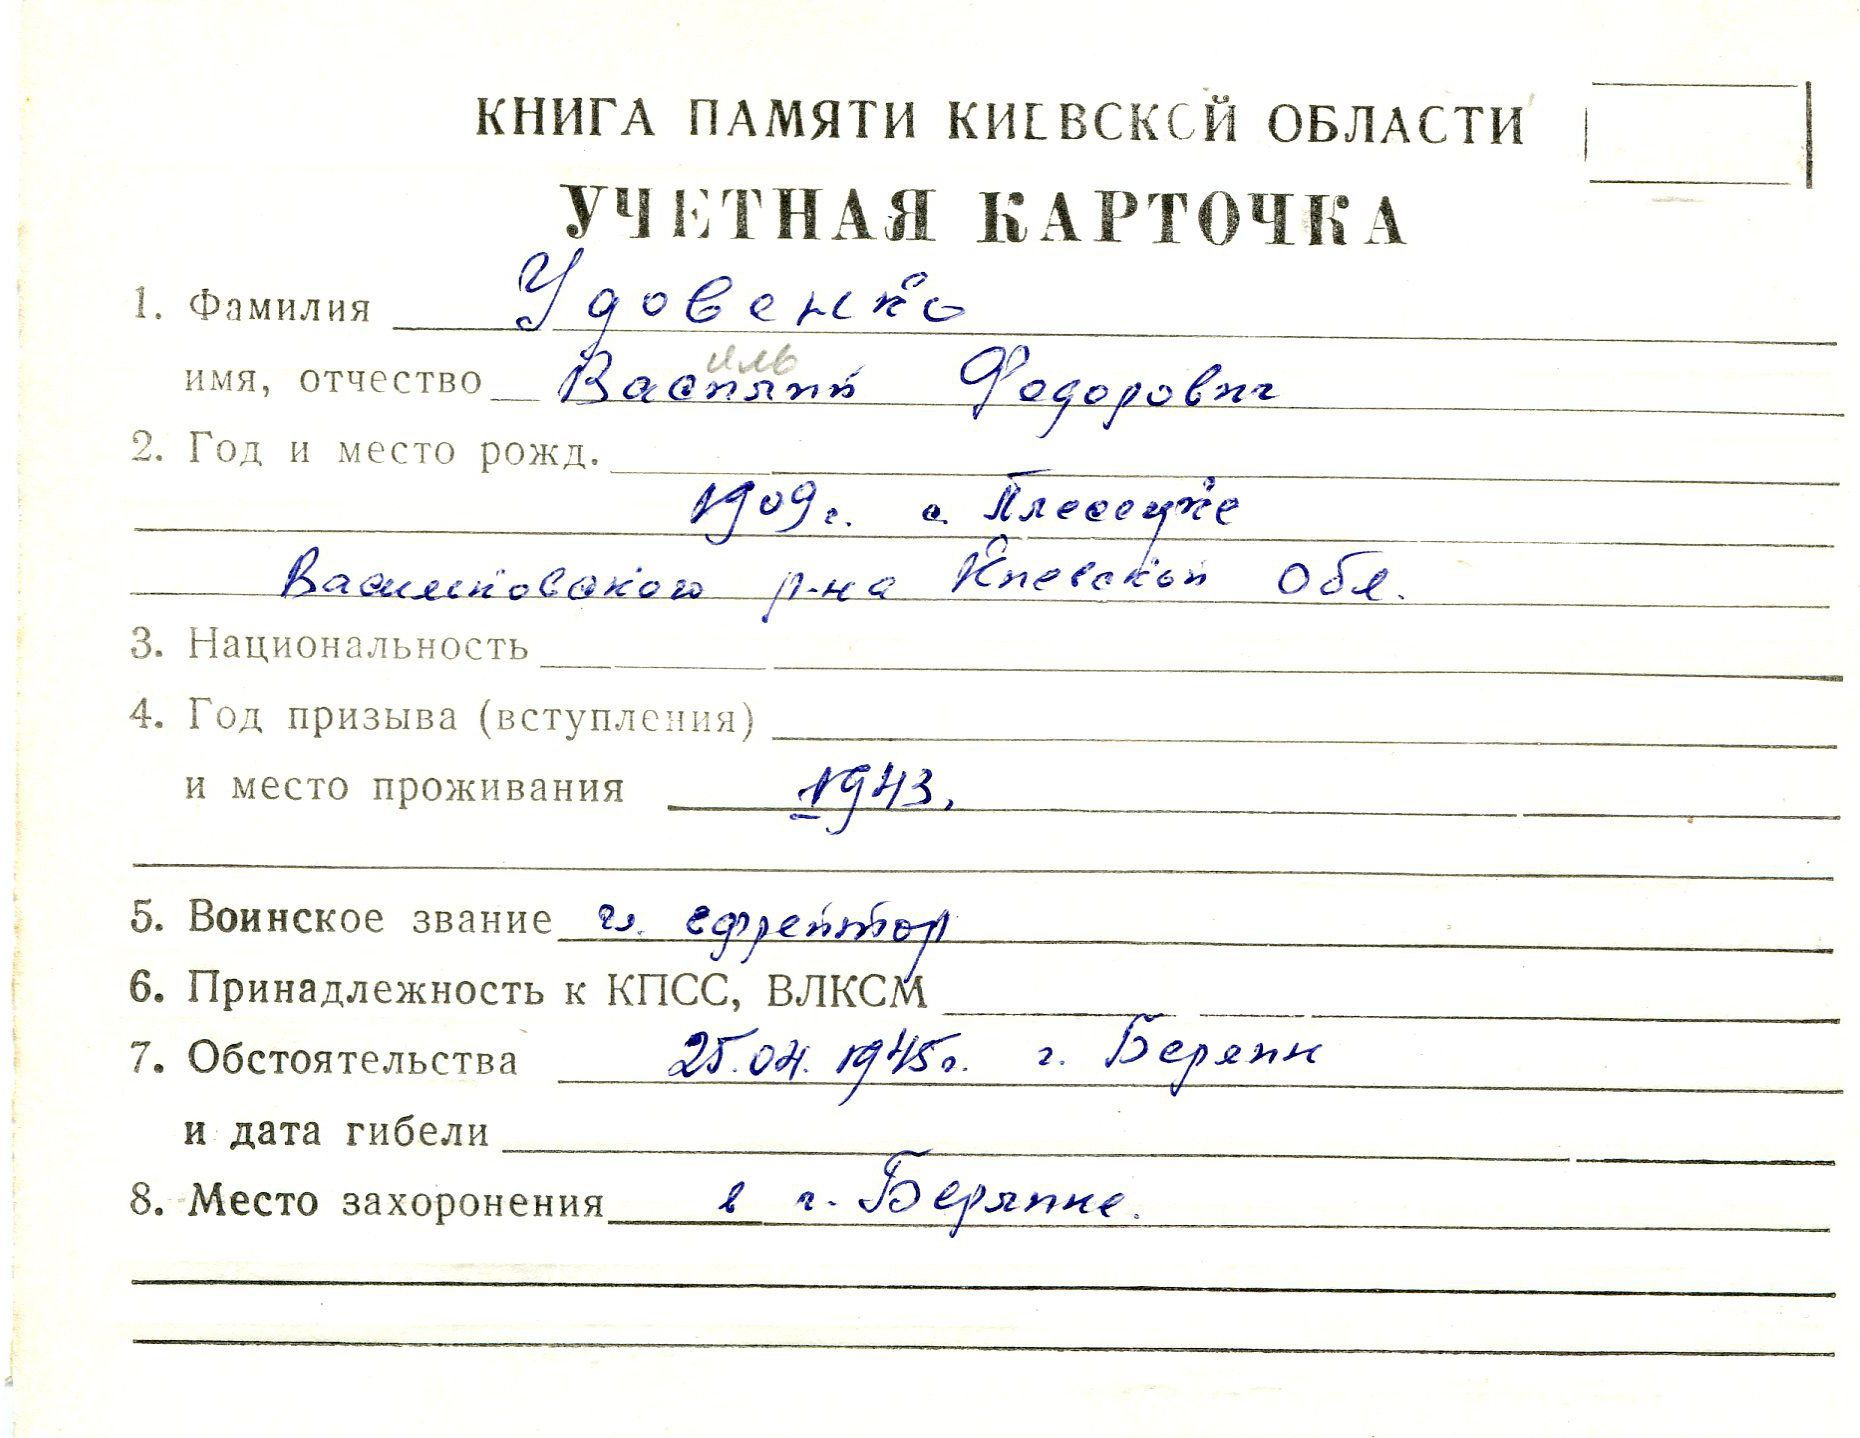 КНИГА ПАМЯТИ КИЕВСКОЙ ОБЛАСТИ
УЧЕТНАЯ КАРТОЧКА
1. Фамилия Удовенко
иль
имя, отчество Василий Федорович
2. Год и место рожд.
1909г. с. Плесецкое
Васильковского р-на Киевской Обл.
3. Национальность
4. Год призыва (вступления)
и место проживания 1943.
5. Воинское звание гв. ефрейтор
6. Принадлежность к КПСС, ВЛКСМ
7. Обстоятельства 25.04.1945г. г. Берлин
и дата гибели
8. Место захоронения в г. Берлине.